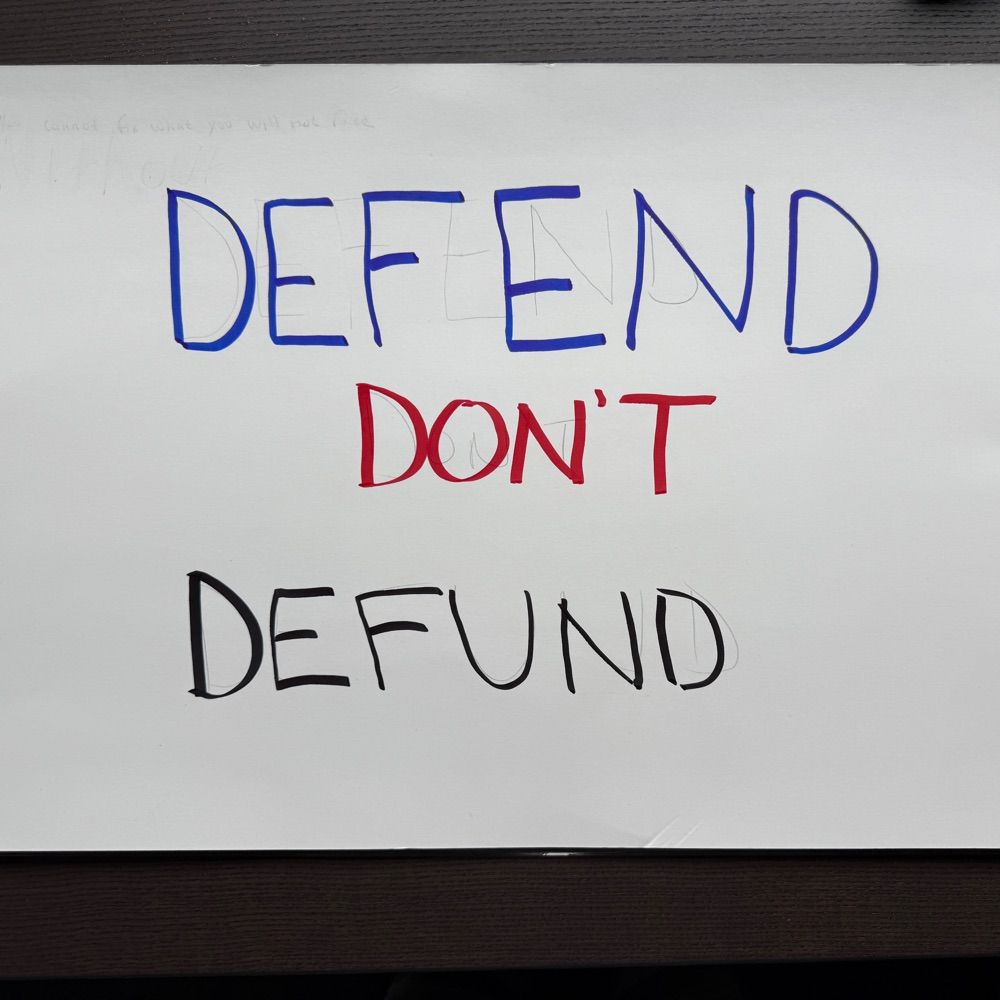 cannot fix what you will not face
DEFEND
DON'T
DEFUND